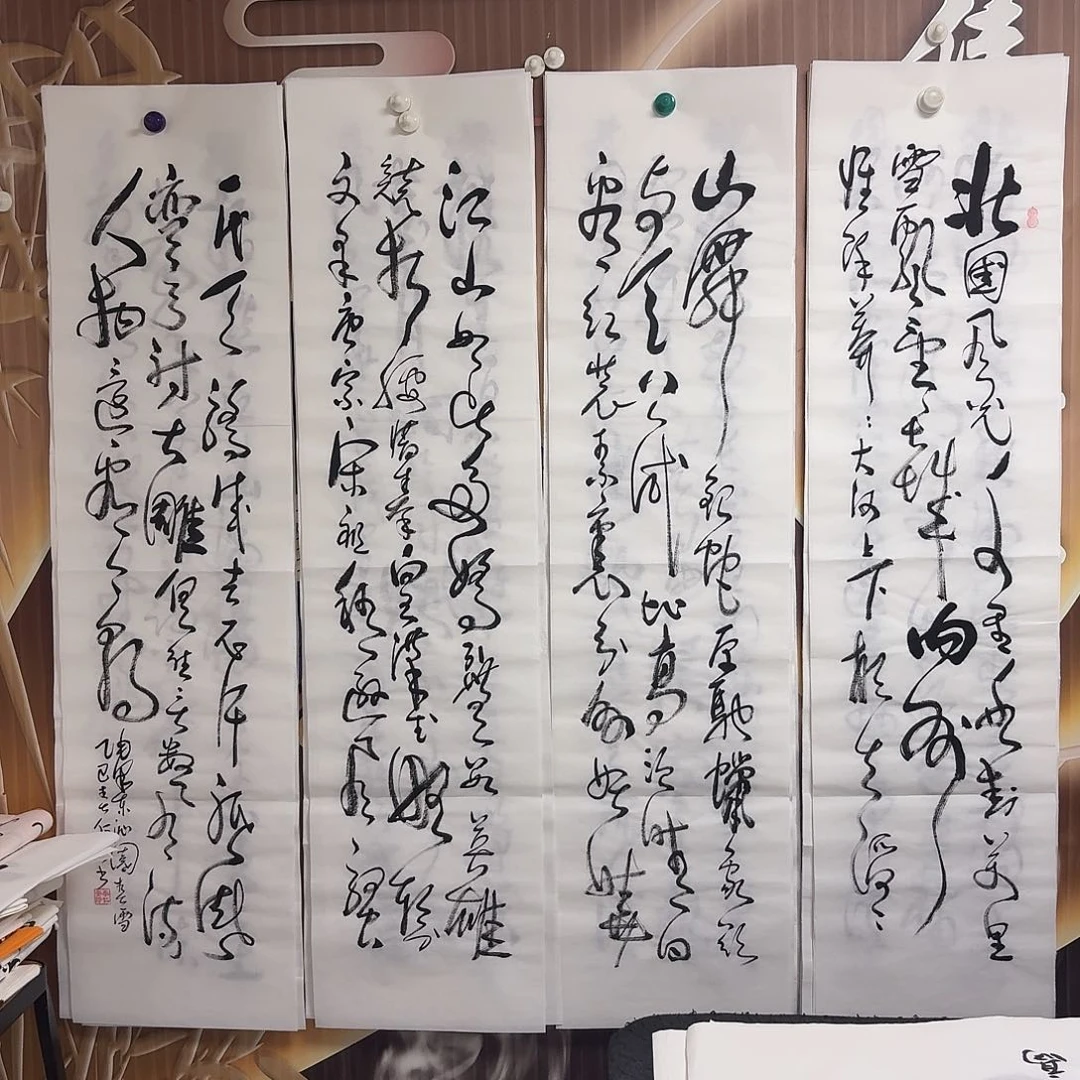 北國风光千里冰封万里
雪飘望长城内外
惟馀莽莽大河上下顿失滔滔
山舞银蛇原驰蠟象欲
与天公试比高须晴日
看红装素裹分外妖娆
江山如此多娇引无数英雄
竞折腰惜秦皇汉武略输
文采唐宗宋祖稍逊风骚
一代天骄成吉思汗祗识
弯弓射大雕俱往矣数风流
人物还看今朝
毛泽东沁園春雪
乙巳 仁 书